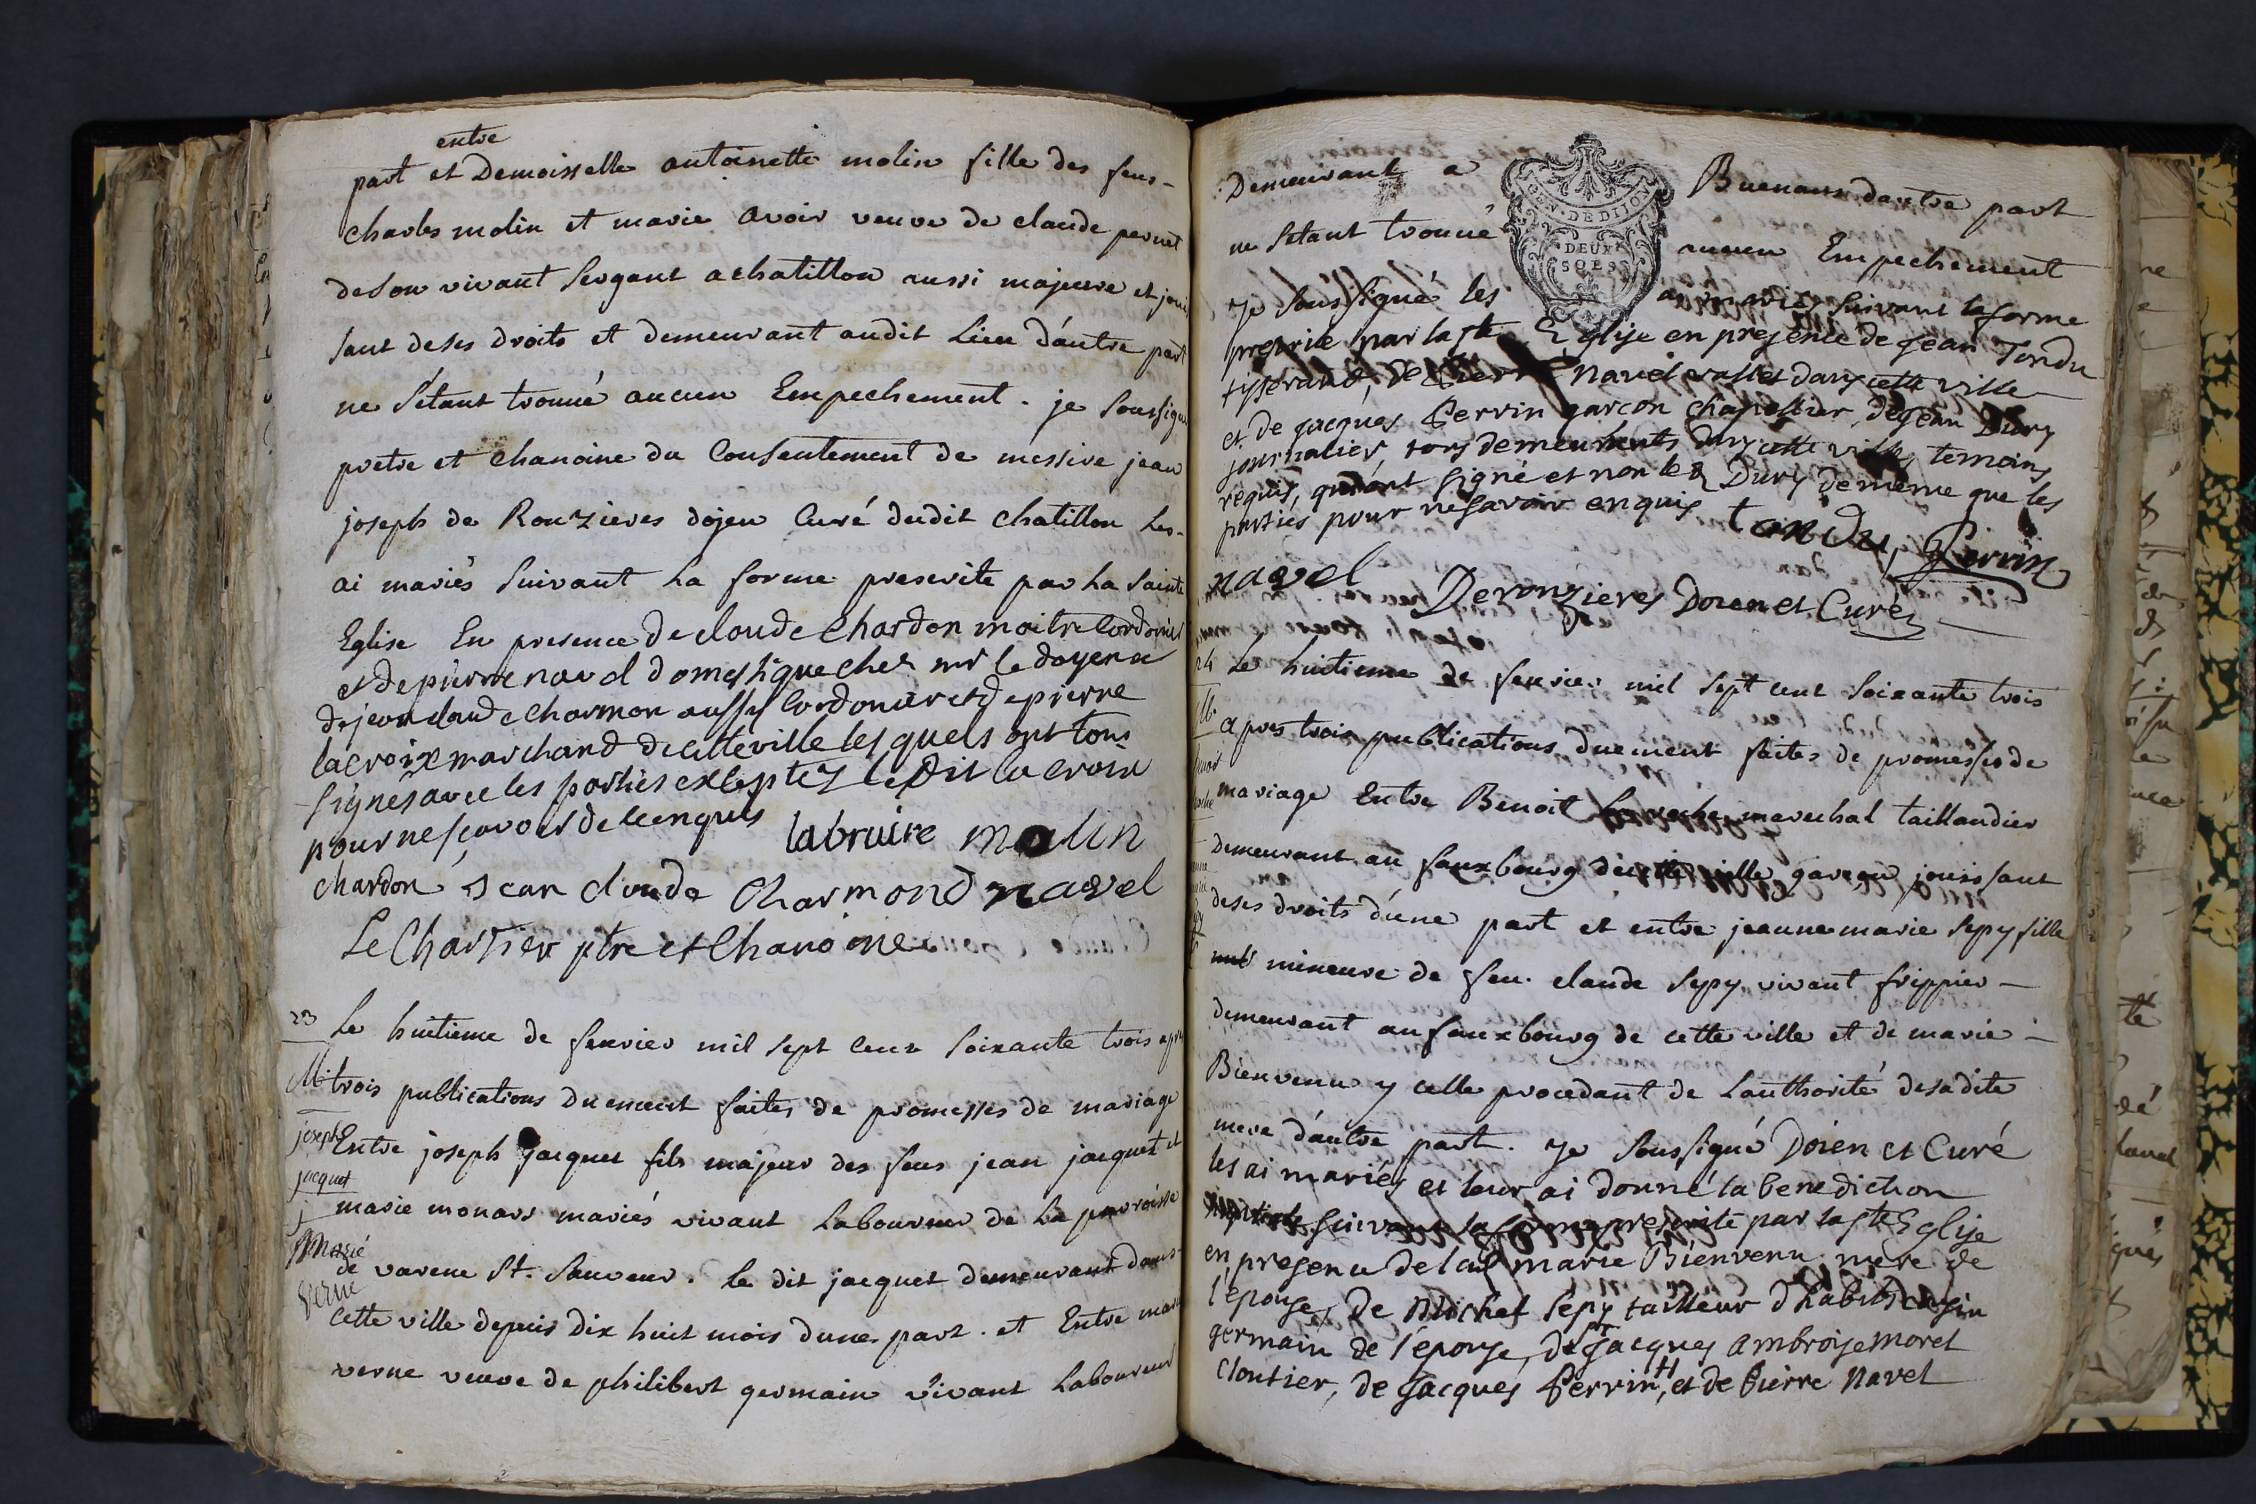 entre
part et Demoisselle antoinette molin fille des feus-
charles molin et marie avoir veuve de claude pernet
de son vivant sergant a chatillon aussi majeure et jouis
sant deses droits et demeurant audit Lieu d'autre part
ne s'étant trouvé aucun Empechement. je soussigné
pretre et chanoine du Consentement de messire jean
joseph de Rouzieres dojen Curé dudit chatillon Les-
ai mariés suivant La forme prescrite par La sainte
Eglise En presence De cloude Chardon maitre Cordonier
et de pierre navel domestique chez mr le doyen de
de jean claude charmon aussy Cordonier et de pierre
lacroix marchand de cette ville lesquels ont tous
signes avec les parties exceptez le Dit lacroix
pour ne scavoir de ce enquis labruire molin
chardon Jean cloude Charmond navel
Le Chartier ptre et Chanoine
23 Le huitieme de fevrier mil sept cent soixante trois apres
M. trois publications duement faites de promesses de mariage
joseph Entre joseph jacquet fils majeur des feus jean jacquet et
jacquet
marie monars mariés vivant Laboureur de La parroisse
Marie
de varene St. Sauveur. Le dit jacquet demeurant dans-
verne
cette ville depuis dix huit mois dune part. et Entre marie
verne veuve de philibert germain vivant Laboureur
Demeurant a Buenans dautre part
ne s'etant trouvé aucun Empechement
Je soussigné les ai mariés suivant la forme
prescrite par la ste Eglise en presence de jean Tondu
tisserand, de Pierre Navel vallet dans cette ville
et de jacques Perrin garcon chapellier, de jean Dury
journalier tous demeurants dans cette ville, temoins
requis, qui ont signé et non led Dury de meme que les
parties pour ne savoir enquis tondu, Perrin
navel Derouzieres Doien et Curé
24 Le huitieme de fevrier mil sept cent soixante trois
M. apres trois publications duement faites de promesses de
mariage Entre Benoit marechal taillandier
demeurant au fauxbourg de cette ville garçon jouissant
deses droits d'une part et entre jeanne marie sepy fille
mineure de feu. claude sepy vivant frippier-
demeurant au fauxbourg de cette ville et de marie-
Bienvenu y celle procedant de Lauthorité desadite
mere d'autre part. Je soussigné Doien et Curé
les ai mariés et leur ai donné la benediction
suivant la forme prescrite par la ste Eglise
en presence de lad marie Bienvenu mere de
l'épouse, de Michel Sepy tailleur d'habits cousin
germain de l'épouse, de jacques ambroise moret
cloutier, de jacques Perrin, et de Pierre Navel